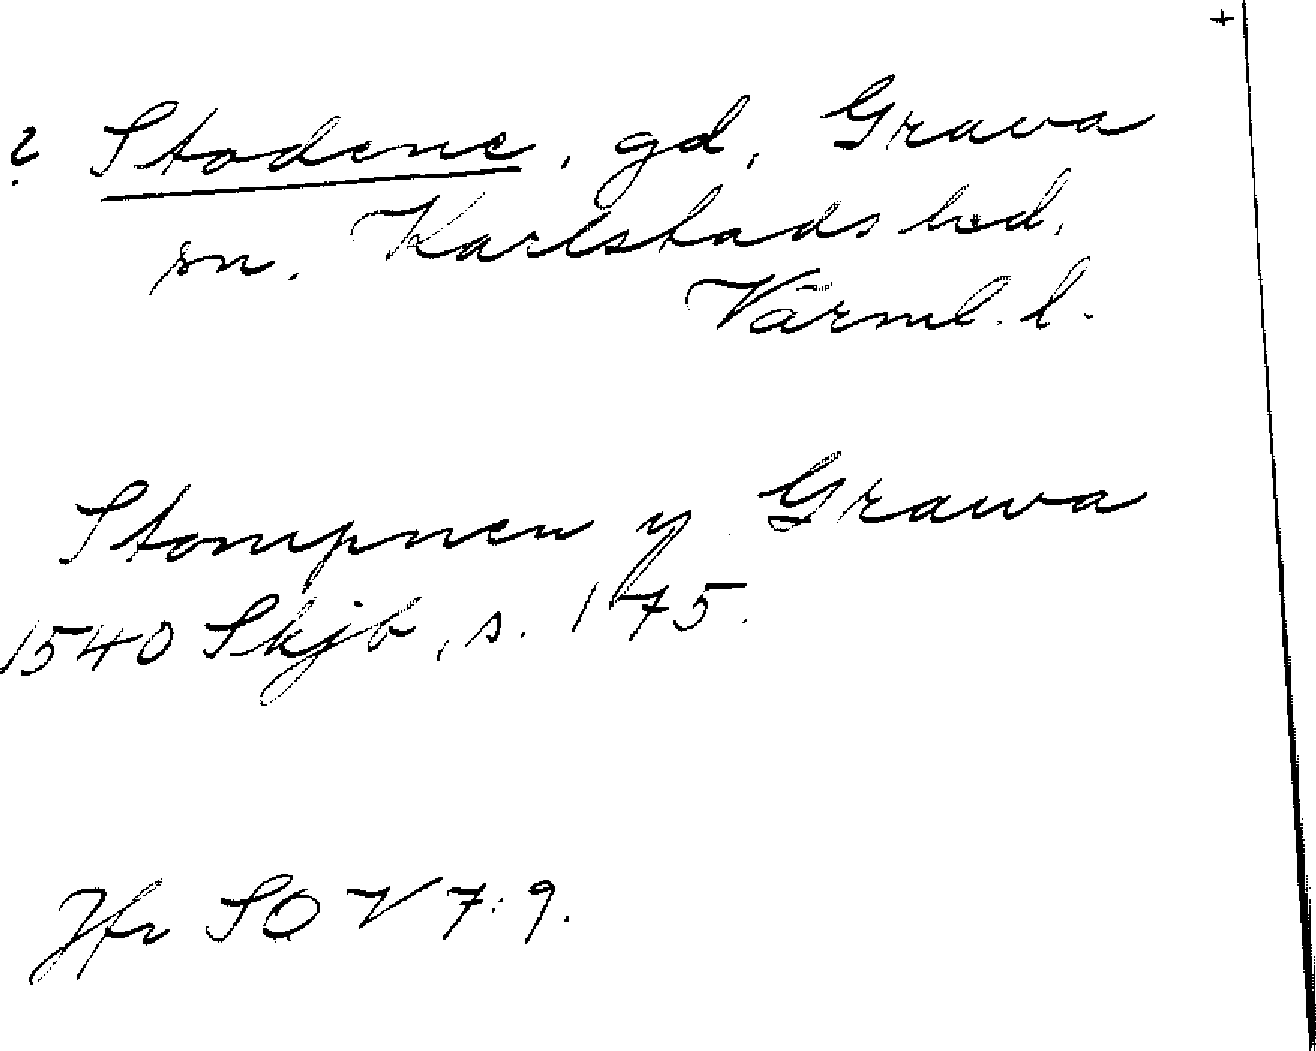 +
? Stodene, gd, Grava
sn. Karlstads hd.
Värml. l.
Stompnen y Grawa
1540 Skjb, s. 175.
Jfr SOV 7:9.